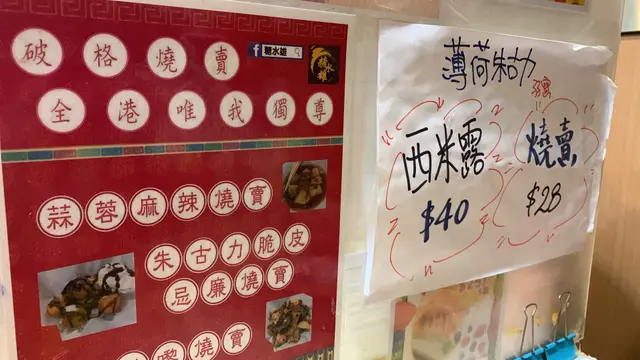 破格燒賣
糖水雄
全港唯我獨尊
蒜蓉麻辣燒賣
朱古力脆皮
忌廉燒賣
燒賣
薄荷朱古力
西米露
$40
燒賣
$28